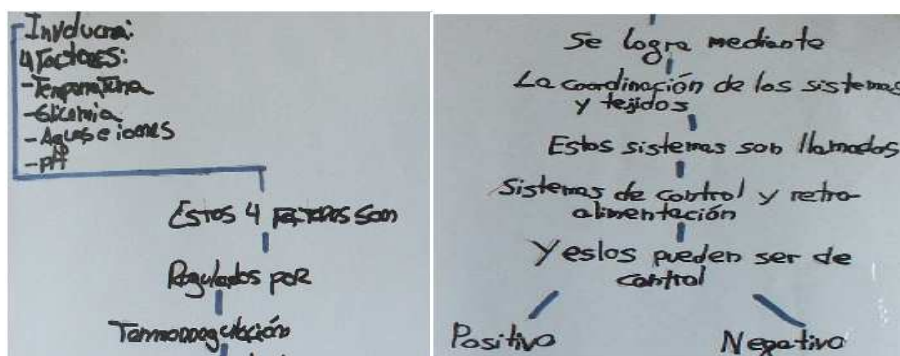 Involucra:
4 Factores:
-Temperatura
-Glicemia
-Aguas e iones
-pH
Estos 4 Factores son
Regulados por
Termorregulación
Se logra mediante
La coordinación de los sistemas
y tejidos
Estos sistemas son llamados
Sistemas de control y retro-
alimentación
Y estos pueden ser de
control
Positivo
Negativo